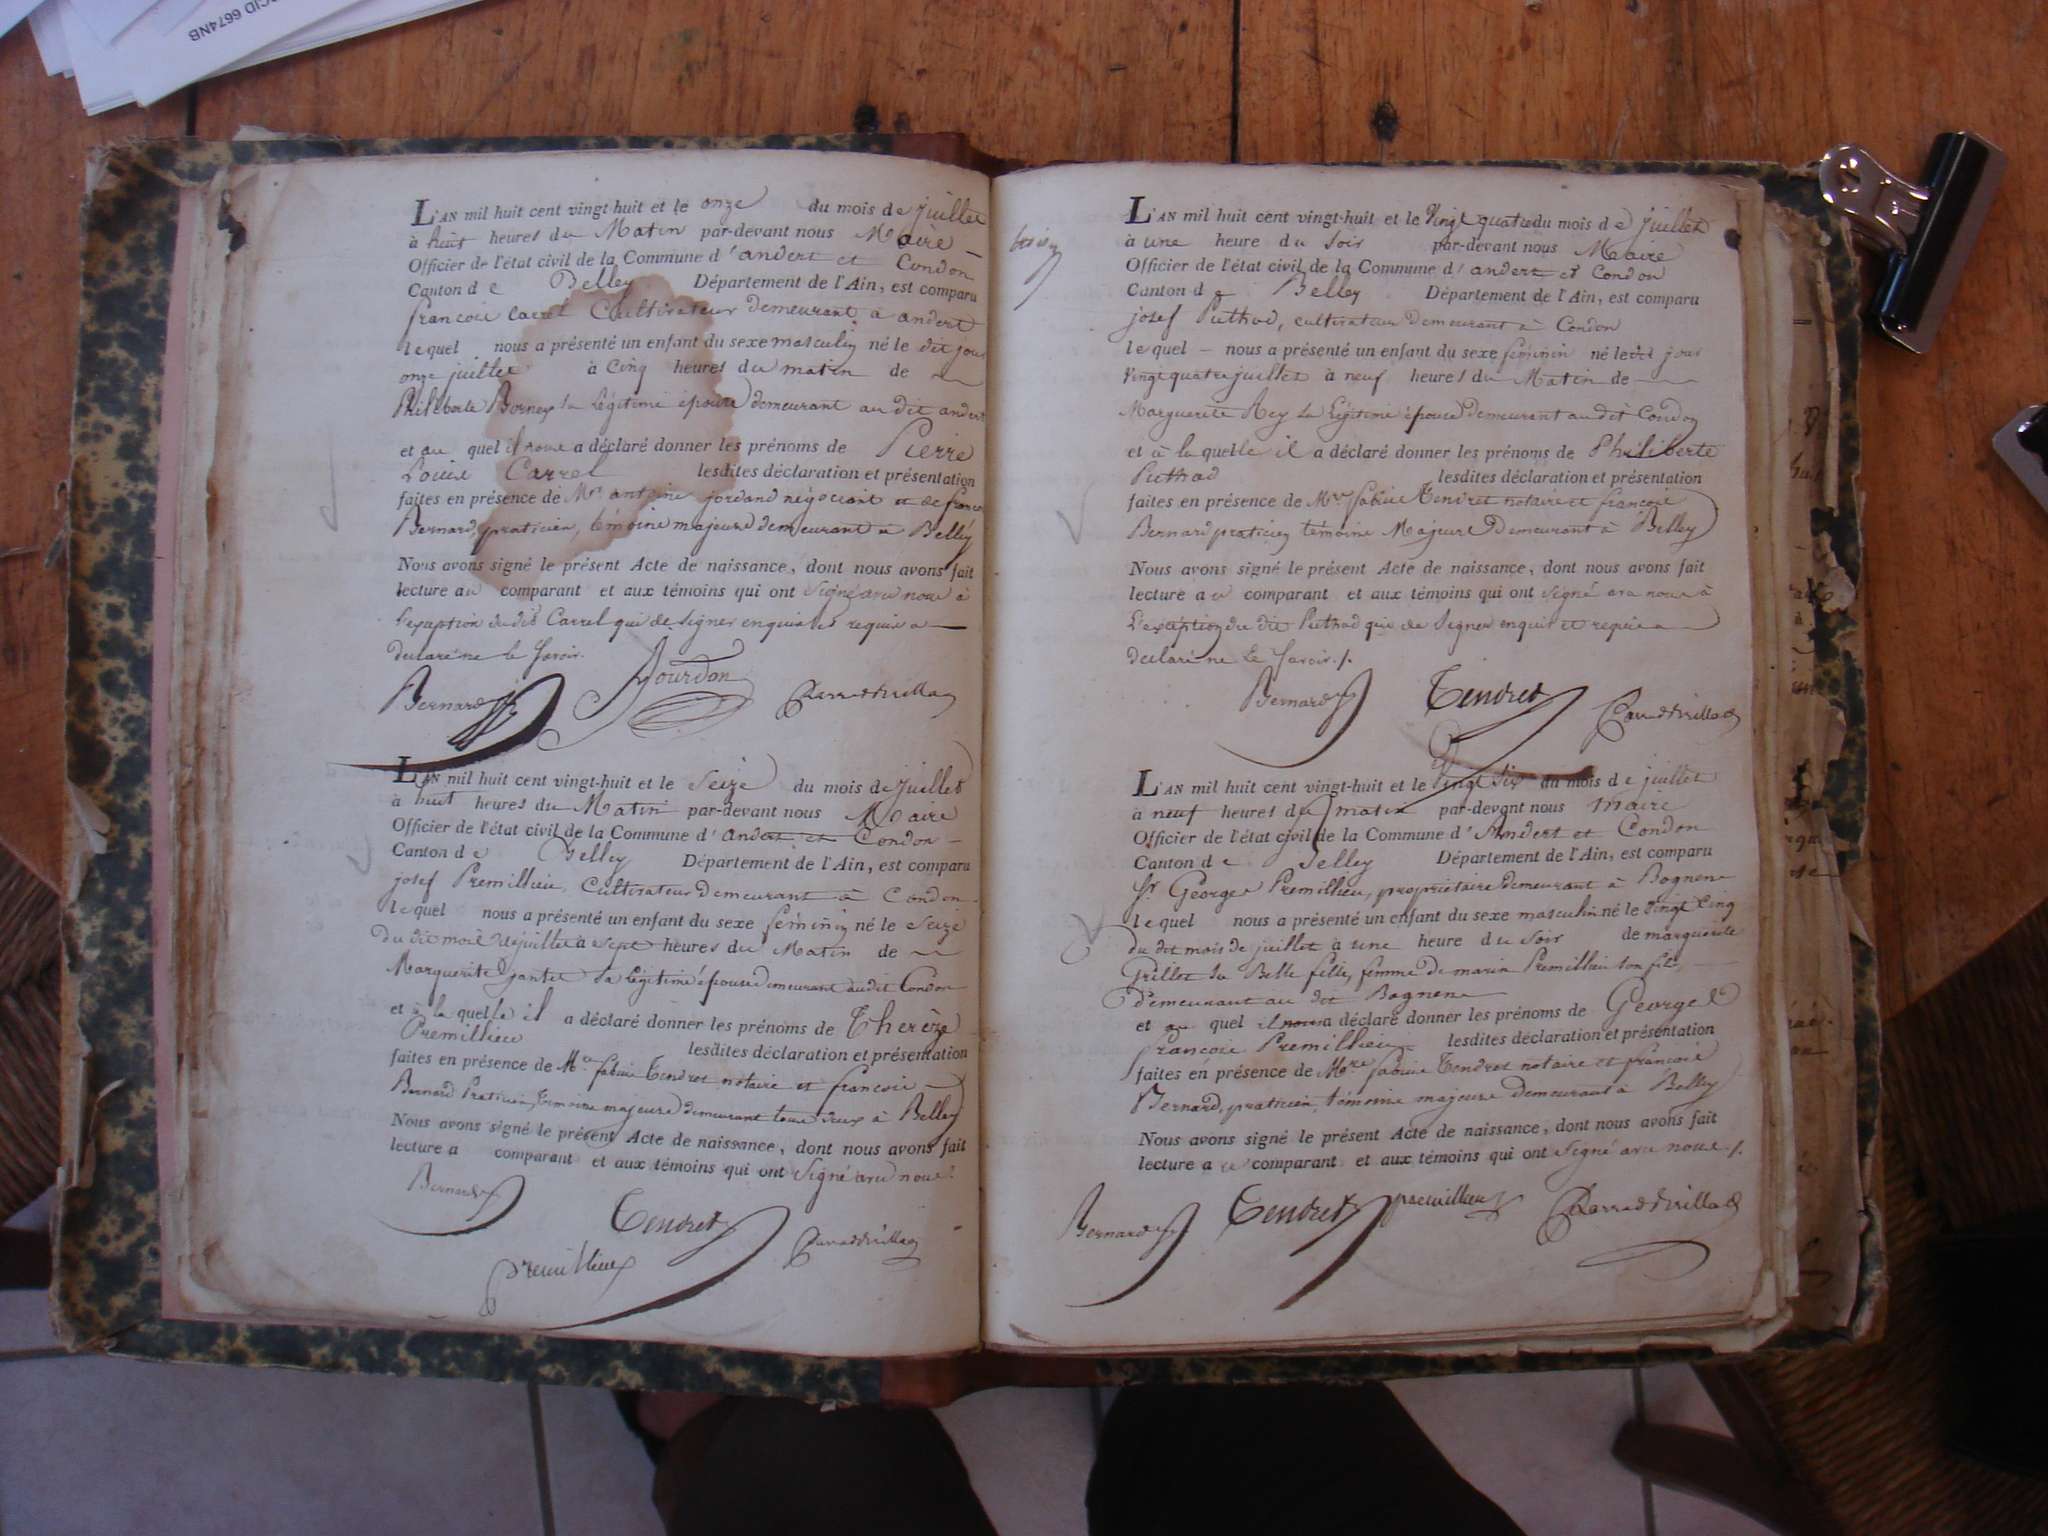 CID 6674NB
L'AN mil huit cent vingt-huit et le onze du mois de juillet
à huit heures du Matin par-devant nous Maire
Officier de l'état civil de la Commune d'andert et Condon
Canton de Belley Département de l'Ain, est comparu
francois Carrel Cultivateur demeurant à andert
lequel nous a présenté un enfant du sexe masculin né le dit jour
onze juillet à Cinq heures du matin de
Philiberte Borney sa légitime épouse demeurant au dit andert
et au quel il nous a déclaré donner les prénoms de Pierre
Louis Carrel lesdites déclaration et présentation
faites en présence de Mr antoine jordand négociant et de francois
Bernard, praticien, témoins majeurs demeurant à Belley
Nous avons signé le présent Acte de naissance, dont nous avons fait
lecture au comparant et aux témoins qui ont signé avec nous à
l'exception du dit Carrel qui de signer enquis et requis a
declaré ne le savoir.
Bernard Jourdon
L'AN mil huit cent vingt-huit et le seize du mois de juillet
à huit heures du Matin par-devant nous Maire
Officier de l'état civil de la Commune d'andert et Condon
Canton de Belley Département de l'Ain, est comparu
josef Premillieu, Cultivateur demeurant à Condon
lequel nous a présenté un enfant du sexe féminin né le seize
du dit mois de juillet à sept heures du Matin de
Marguerite sa légitime épouse demeurant au dit Condon
et à la quelle il a déclaré donner les prénoms de Therèze
Premillieu lesdites déclaration et présentation
faites en présence de Me fabien Tendret notaire et francois
Bernard Praticien, témoins majeurs demeurant tous deux à Belley
Nous avons signé le présent Acte de naissance, dont nous avons fait
lecture a comparant et aux témoins qui ont signé avec nous.
Bernard Tendret
Premillieu
L'AN mil huit cent vingt-huit et le vingt quatre du mois de juillet
à une heure du soir par-devant nous Maire
Officier de l'état civil de la Commune d'andert et Condon
Canton de Belley Département de l'Ain, est comparu
josef Puthod, cultivateur demeurant à Condon
lequel nous a présenté un enfant du sexe féminin né le dit jour
vingt quatre juillet à neuf heures du Matin de
Marguerite Rey sa légitime épouse demeurant au dit Condon
et à la quelle il a déclaré donner les prénoms de Philiberte
Puthod lesdites déclaration et présentation
faites en présence de Mre fabien Tendret notaire et francois
Bernard praticien témoins Majeurs demeurant à Belley
Nous avons signé le présent Acte de naissance, dont nous avons fait
lecture au comparant et aux témoins qui ont signé avec nous à
L'exception du dit Puthod qui de signer enquis et requis a
declaré ne le savoir./.
Bernard Tendret
L'AN mil huit cent vingt-huit et le vingt six du mois de juillet
à neuf heures du matin par-devant nous maire
Officier de l'état civil de la Commune d'Andert et Condon
Canton de Belley Département de l'Ain, est comparu
Sr George Premillieu, propriétaire demeurant à Bognens
lequel nous a présenté un enfant du sexe masculin né le vingt cinq
du dit mois de juillet à une heure du soir de marguerite
Grillet sa Belle fille, femme de marin Premillieu son fils,
demeurant au dit Bognens
et au quel il nous a déclaré donner les prénoms de George
francois Premillieu lesdites déclaration et présentation
faites en présence de Mre fabien Tendret notaire et francois
Bernard, praticien, témoins majeurs demeurant à Belley
Nous avons signé le présent Acte de naissance, dont nous avons fait
lecture au comparant et aux témoins qui ont signé avec nous./.
Bernard Tendret premillieu